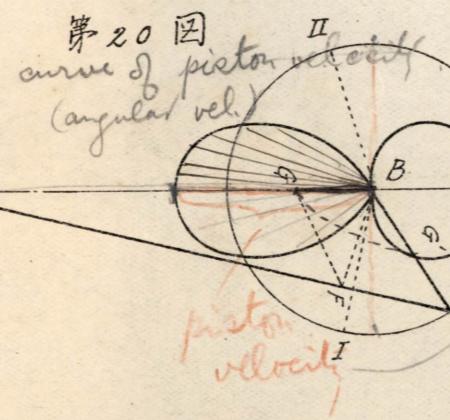 第20図
II
curve of piston velocity
(angular vel.)
B
G
G
F
I
piston
velocity